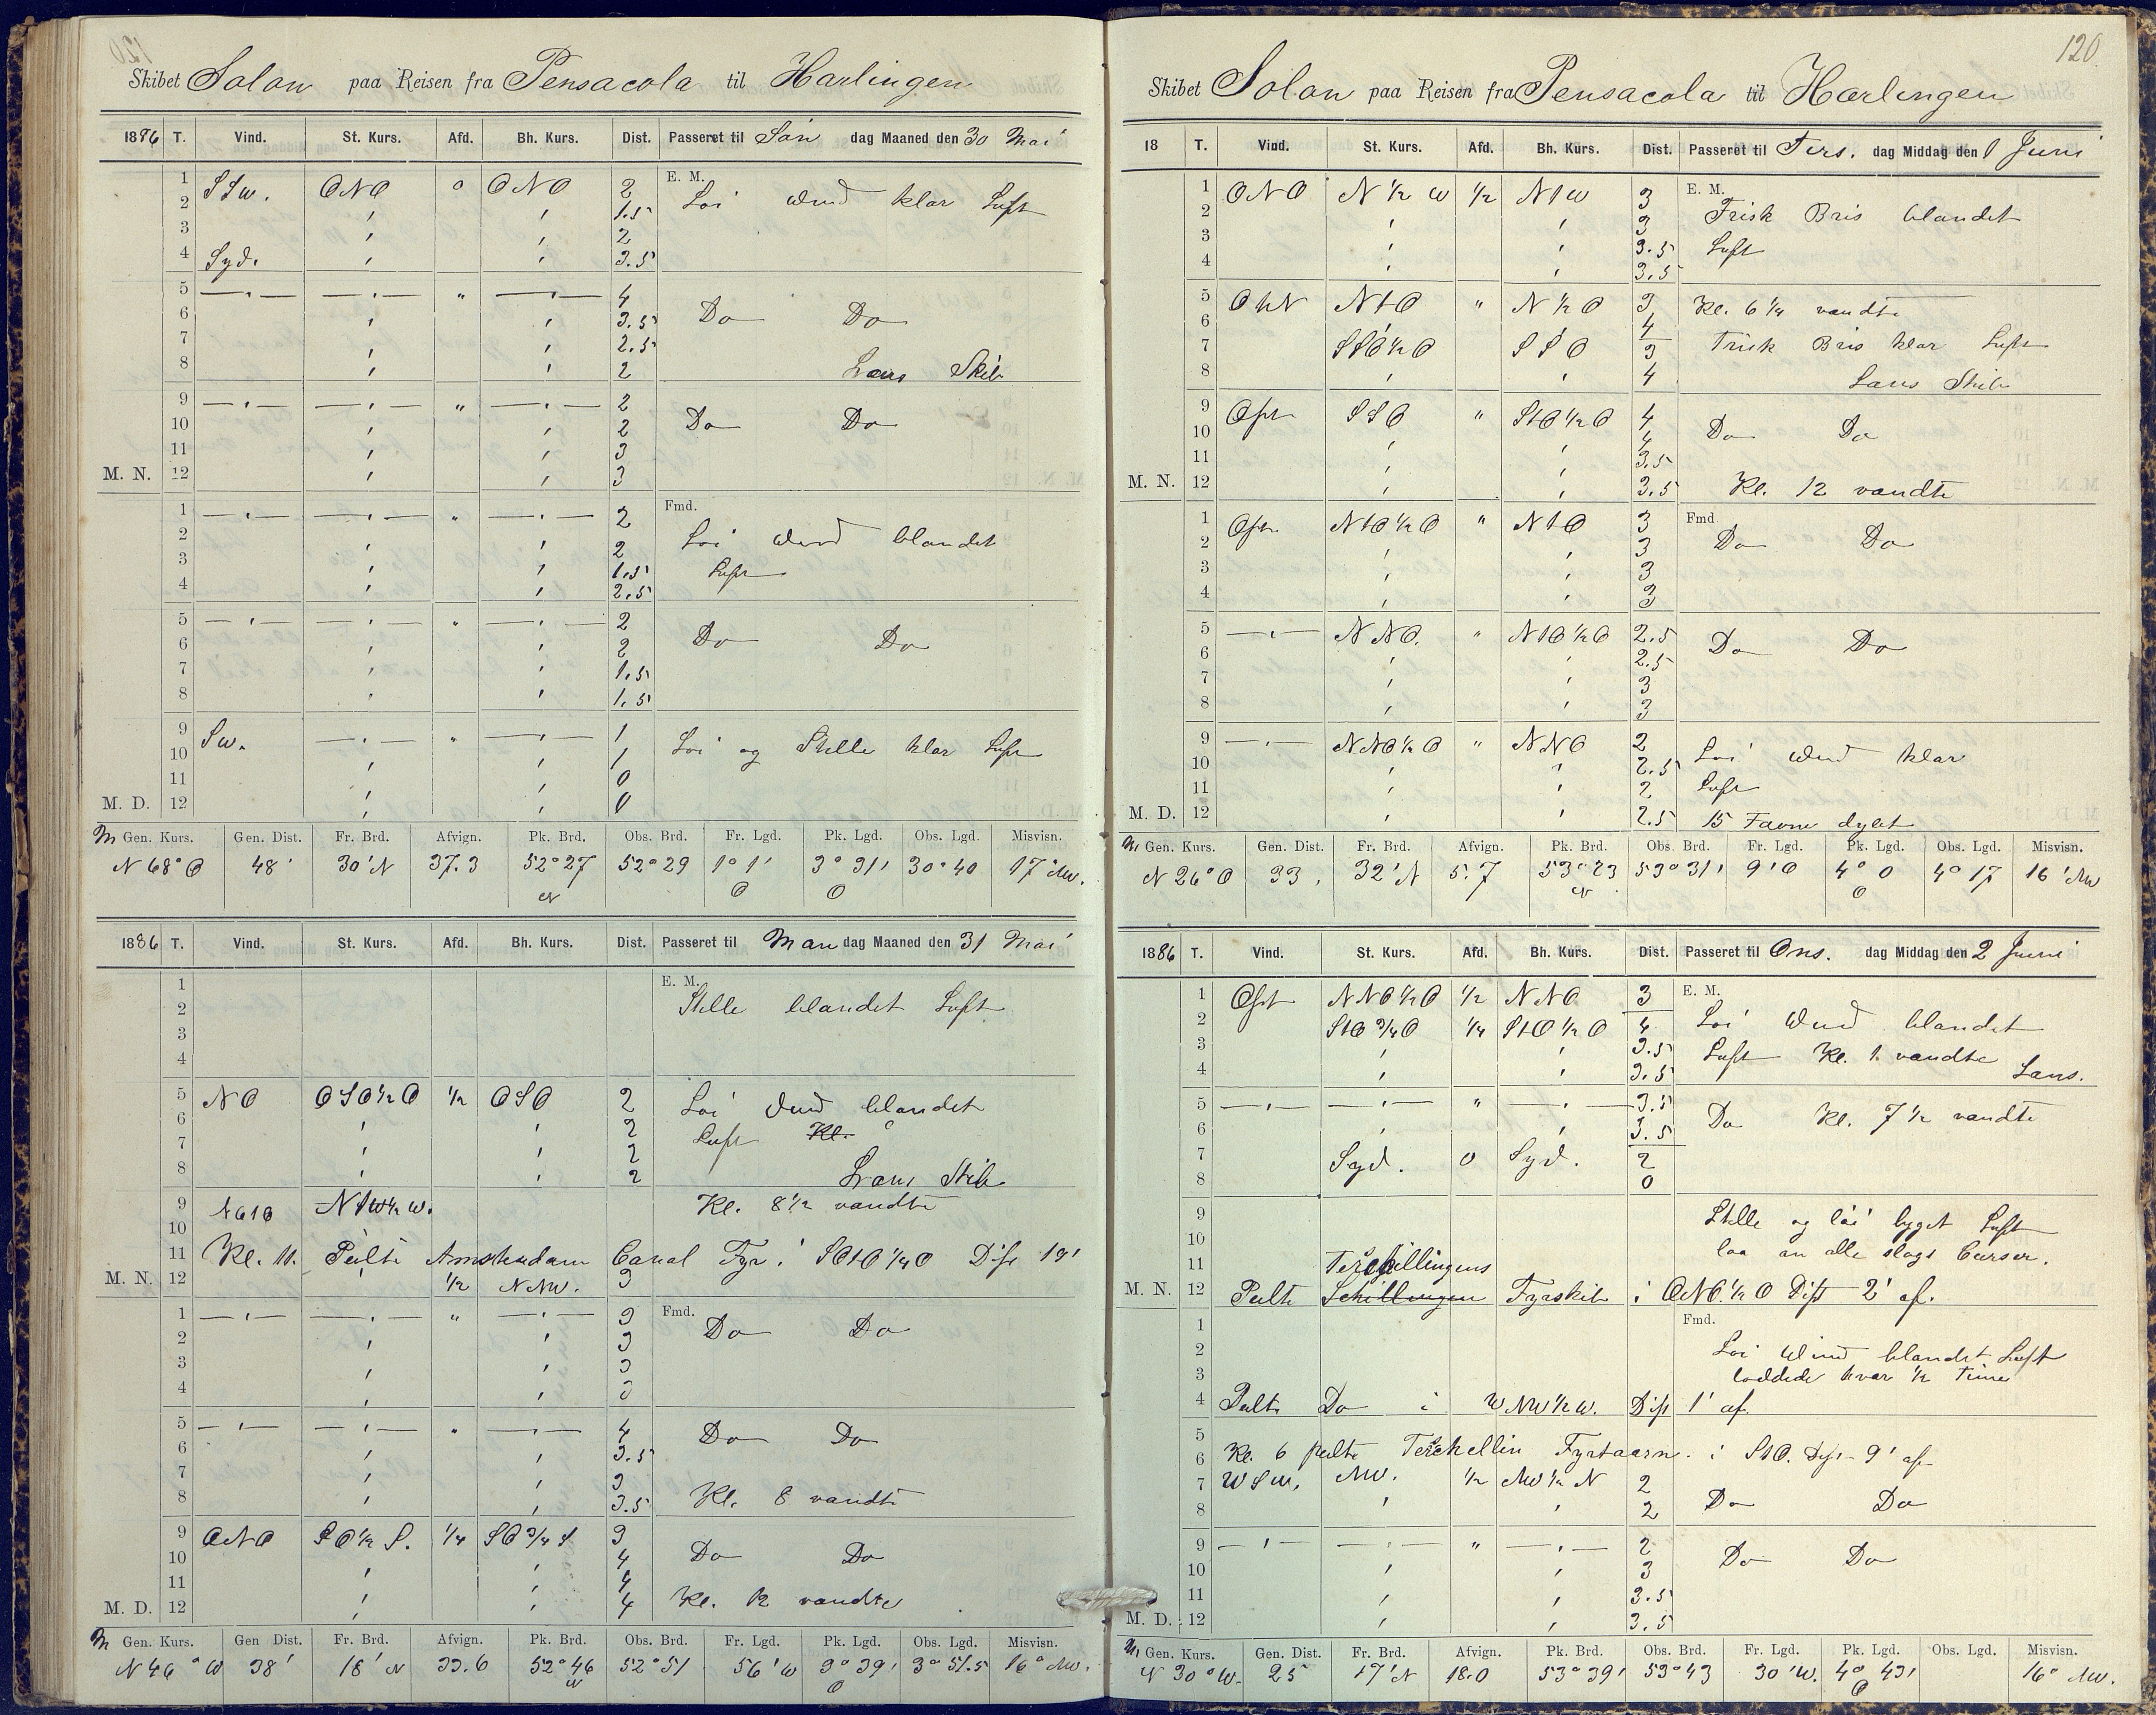 Skibet Solon paa Reisen fra Pensacola til Harlingen
1886 T. Vind. St. Kurs. Afd. Bh. Kurs. Dist. Passeret til Søn dag Maaned den 30 Mai
1 SSw. ONO 0 ONO 2 E. M.
2 ' ' 1.5 Löi Wind klar Luft
3 ' ' 2
4 Syd. ' ' 3.5
5 —"— —"— " —"— 4
6 ' ' 3.5 Do Do
7 ' ' 2.5
8 ' ' 2 Læns Skib
9 —"— —"— " —"— 2
10 ' ' 2 Do Do
11 ' ' 3
M. N. 12 ' ' 3
1 —"— —"— " —"— 2 Fmd.
2 ' ' 2 Löi Wind blandet
3 ' ' 1.5 Luft
4 ' ' 2.5
5 —"— —"— " —"— 2
6 ' ' 2 Do Do
7 ' ' 1.5
8 ' ' 1.5
9 Sw. —"— " —"— 1
10 ' ' 1 Löi og Stille klar Luft
11 ' ' 0
M. D. 12 ' ' 0
M Gen. Kurs. Gen. Dist. Fr. Brd. Afvign. Pk. Brd. Obs. Brd. Fr. Lgd. Pk. Lgd. Obs. Lgd. Misvisn.
N 68° O 48' 30' N 37.3 52° 27 N 52° 29 1° 1' O 3° 31' O 30° 40 17° NW.
1886 T. Vind. St. Kurs. Afd. Bh. Kurs. Dist. Passeret til Man dag Maaned den 31 Mai
1 E. M.
2 Stille blandet Luft
3
4
5 NO OSO½O ½ OSO 2 Löi Wind blandet
6 ' ' 2 Luft Kl.
7 ' ' 2
8 ' ' 2 Læns Skib
9 NO1O N1W½W. Kl. 8½ vandte
10
11 Kl. 11. Peilte Amsterdam Canal Fyr i SO1O¼O Dist 19'
M. N. 12 ' ½ NNW. 3
1 —"— —"— " —"— 3 Fmd.
2 ' ' 3 Do Do
3 ' ' 3
4 ' ' 3
5 —"— —"— " —"— 4
6 ' ' 3.5 Do Do
7 ' ' 3
8 ' ' 3.5 Kl. 8 vandte
9 ONO SO½S. ¼ SO¾S 3
10 ' ' 4 Do Do
11 ' ' 4
M. D. 12 ' ' 4 Kl. 12 vandte
M Gen. Kurs. Gen Dist. Fr. Brd. Afvign. Pk. Brd. Obs. Brd. Fr. Lgd. Pk. Lgd. Obs. Lgd. Misvisn.
N 46° W 38' 18' N 33.6 52° 46 N 52° 51 56' W 3° 39' O 3° 51.5 16° NW.
120
Skibet Solon paa Reisen fra Pensacola til Harlingen
18 T. Vind. St. Kurs. Afd. Bh. Kurs. Dist. Passeret til Tirs. dag Middag den 1 Juni
1 ONO N½W ½ N1W 3 E. M.
2 ' ' 3 Frisk Bris blandet
3 ' ' 3.5 Luft
4 ' ' 3.5
5 OhN N1O " N½O 3 Kl. 6¼ vandte
6 4
7 SSO½O SSO 3 Frisk Bris klar Luft
8 ' ' 4 Læns Skib
9 Ost SSO " S1O½O 4
10 ' ' 4 Do Do
11 ' ' 3.5
M. N. 12 ' ' 3.5 Kl. 12 vandte
1 Ost. N1O½O " N1O 3 Fmd
2 ' 3 Do Do
3 ' ' 3
4 ' ' 3
5 —"— NNO. " N1O½O 2.5
6 ' ' 2.5 Do Do
7 ' ' 3
8 ' ' 3
9 —"— NNO½O " NNO 2
10 ' ' 2.5 Löi Wind klar
11 ' ' 2 Luft
M. D. 12 ' ' 2.5 15 Favne dybt
M Gen. Kurs. Gen. Dist. Fr. Brd. Afvign. Pk. Brd. Obs. Brd. Fr. Lgd. Pk. Lgd. Obs. Lgd. Misvisn.
N 26° O 33' 32' N 5.7 53° 23 N 53° 31' 9' O 4° 0 O 4° 17 16' NW
1886 T. Vind. St. Kurs. Afd. Bh. Kurs. Dist. Passeret til Ons. dag Middag den 2 Juni
1 Ost NNO½O ½ NNO 3 E. M.
2 S1O¾O ¼ S1O½O 4 Löi Wind blandet
3 ' ' 3.5 Luft Kl. 1. vandte
4 ' ' 3.5 Læns.
5 —"— —"— " —"— 3.5
6 ' ' 3.5 Do Kl. 7½ vandte
7 Syd. 0 Syd. 2
8 0
9 Stille og löi byget Luft
10 laa an alle slags Curser.
11 Terschillingens
M. N. 12 Peilte Schillingen Fyrskib i ONO.½O Dist 2' af.
1 Fmd.
2 Löi Wind blandet Luft
3 loddede hvar ½ Time
4 Peilte Do i WNW½W. Dist 1' af.
5
6 Kl. 6 peilte Terschellin Fyrtaarn. i S1O. Dist 9' af
7 WSW. NW. ½ NW½N 2
8 ' ' 2 Do Do
9 —"— —"— " —"— 2
10 ' ' 3 Do Do
11 ' ' 3.5
M. D. 12 ' ' 3.5
M Gen. Kurs. Gen. Dist. Fr. Brd. Afvign. Pk. Brd. Obs. Brd. Fr. Lgd. Pk. Lgd. Obs. Lgd. Misvisn.
N 30° W. 25 17' N 18.0 53° 39' 53° 43 30' W. 4° 43' O 16° NW.